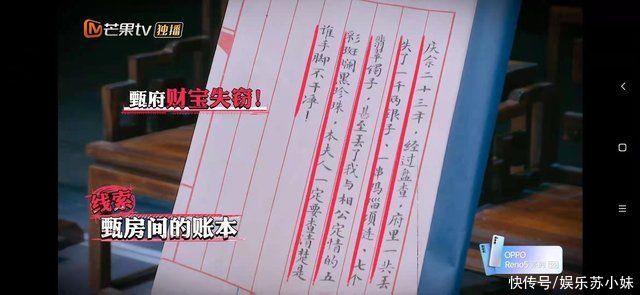 芒果tv 独播
甄府财宝失窃!
线索
甄房间的账本
庆余二十三年,经过盘查,府里一共丢
失了一千两银子、一串玛瑙项链、七个
翡翠镯子,甚至丢了我与相公定情的五
彩斑斓黑珍珠,本夫人一定要查清楚是
谁手脚不干净!
OPPO
Reno5系列 5G
快传号/娱乐苏小妹